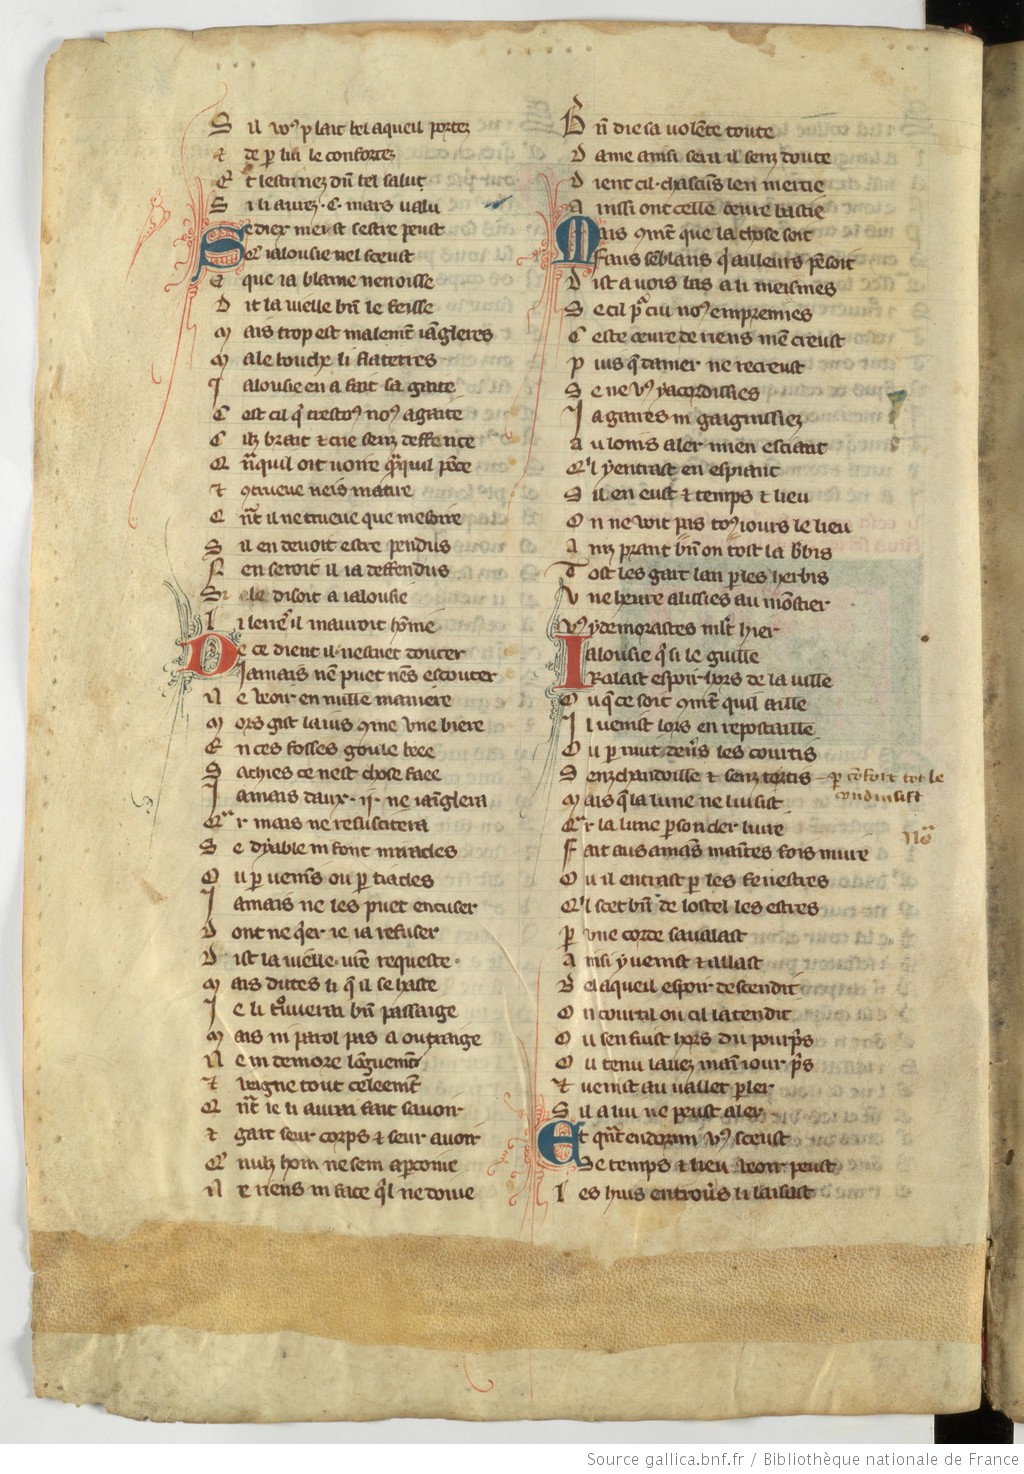 S il vo⁹ plait bel aqueil portez
⁊ de p lui le confortez
E t lestrinez dun bel salut
S i li aurez .C. mars valu
S e diex mei st cestre peust
Que ialousie nel sceust
E que ia blame nen oisse
D it la vielle bn le feisse
M ais trop est malemt iangleres
M ale bouche li flateres
I alousie en a fait sa gaite
C est cil q trestoz no⁹ agaite
C ilz brait ⁊ crie senz deffence
Q nquil oit voire quāquil pēce
⁊ ꝯtrueue neis matire
Q nt il ne trueue que mesdire
S il en devoit estre pendus
N en seroit il ia deffendus
Si le disoit a ialousie
L i lerres il mauroit hōnie
D e ce dient il nestuet douter
Iamais nē puet nēs escouter
N e veoir en nulle maniere
M ors gist laius ꝯme vne biere
E n ces fosses goule beee
S achies ce nest chose faee
I amais daux .ij. ne ianglera
Q r mais ne resuscitera
S e dyable ni font miracles
O u p venins ou p tiacles
I amais ne les puet encuser
D ont ne qer ie ia refuser
D ist la vielle vre requeste
M ais dittes li q il se haste
I e li trouuerai bn passaige
M ais ni parol pas a outraige
N e ni demore longuemt
⁊ veigne tout celeemt
Q nt ie li aurai fait savoir
⁊ gart seur corps ⁊ seur avoir
Q nulz hom ne sem aperçoiue
N e riens ni face ql ne doiue
B n die sa volente toute
D ame ainsi sera il senz doute
D ient cil chascuns len mercie
A inssi ont celle oeure bastie
M ais ꝯmēt que la chose soit
Fams semblans q ailleurs pēsoit
D ist a vois bas a li meismes
S e cil p cui no⁹ empreimes
C este oeure de riens mē creust
P uis q damer ne recreust
S e ne v⁹ y acordissies
I a gaires ni gaignissiez
A u loins aler mien esciant
Q il y entrast en espiant
S il en eust ⁊ temps ⁊ lieu
O n ne voit pas to⁹iours le lieu
A inz prant bn on tost la bbis
Tost les gart lan p les herbis
V ne heure alissies au monstier
V⁹ y demorastes mlt hier
I alousie q si le guille
Ralast espoir hors de la ville
O u q ce soit ꝯmēt quil aille
I l venist lors en repostaille
O u p nuit deuers les courtis
S enz chandoille ⁊ senz tortis
p cōfort tot le
conduisist
M ais q la lune ne luisist
Q r la lune p son cler luire
F ait aus amās maintes fois nuire
No
O u il entrast p les fenestres
Q il scet bn de lostel les estres
P vne corde savalast
A insi y venist ⁊ allast
B el aqueil espoir descendit
O n courtil ou cil latendit
O u sen fuist hors du pourpris
O u tenu lauez maīt iour pris
⁊ venist au vallet pler
S il a lui ne peust aler
E t qnt endormi v⁹ sceust
Se temps ⁊ lieu veoir peust
L es huis entrouvers li laisast
Source gallica.bnf.fr / Bibliothèque nationale de France